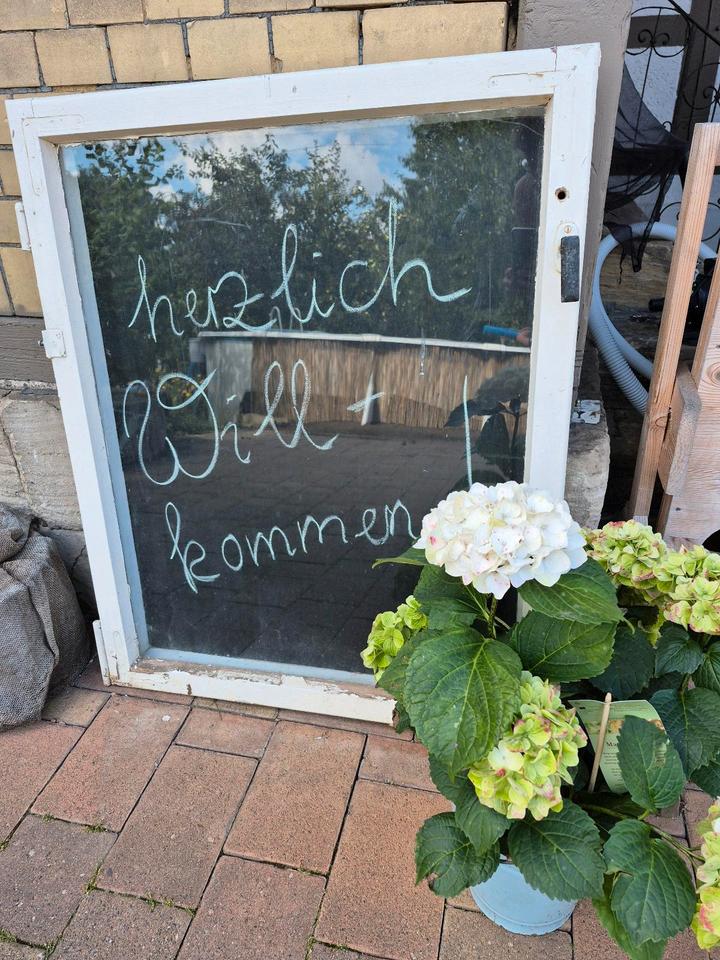 herzlich
Will -
kommen !